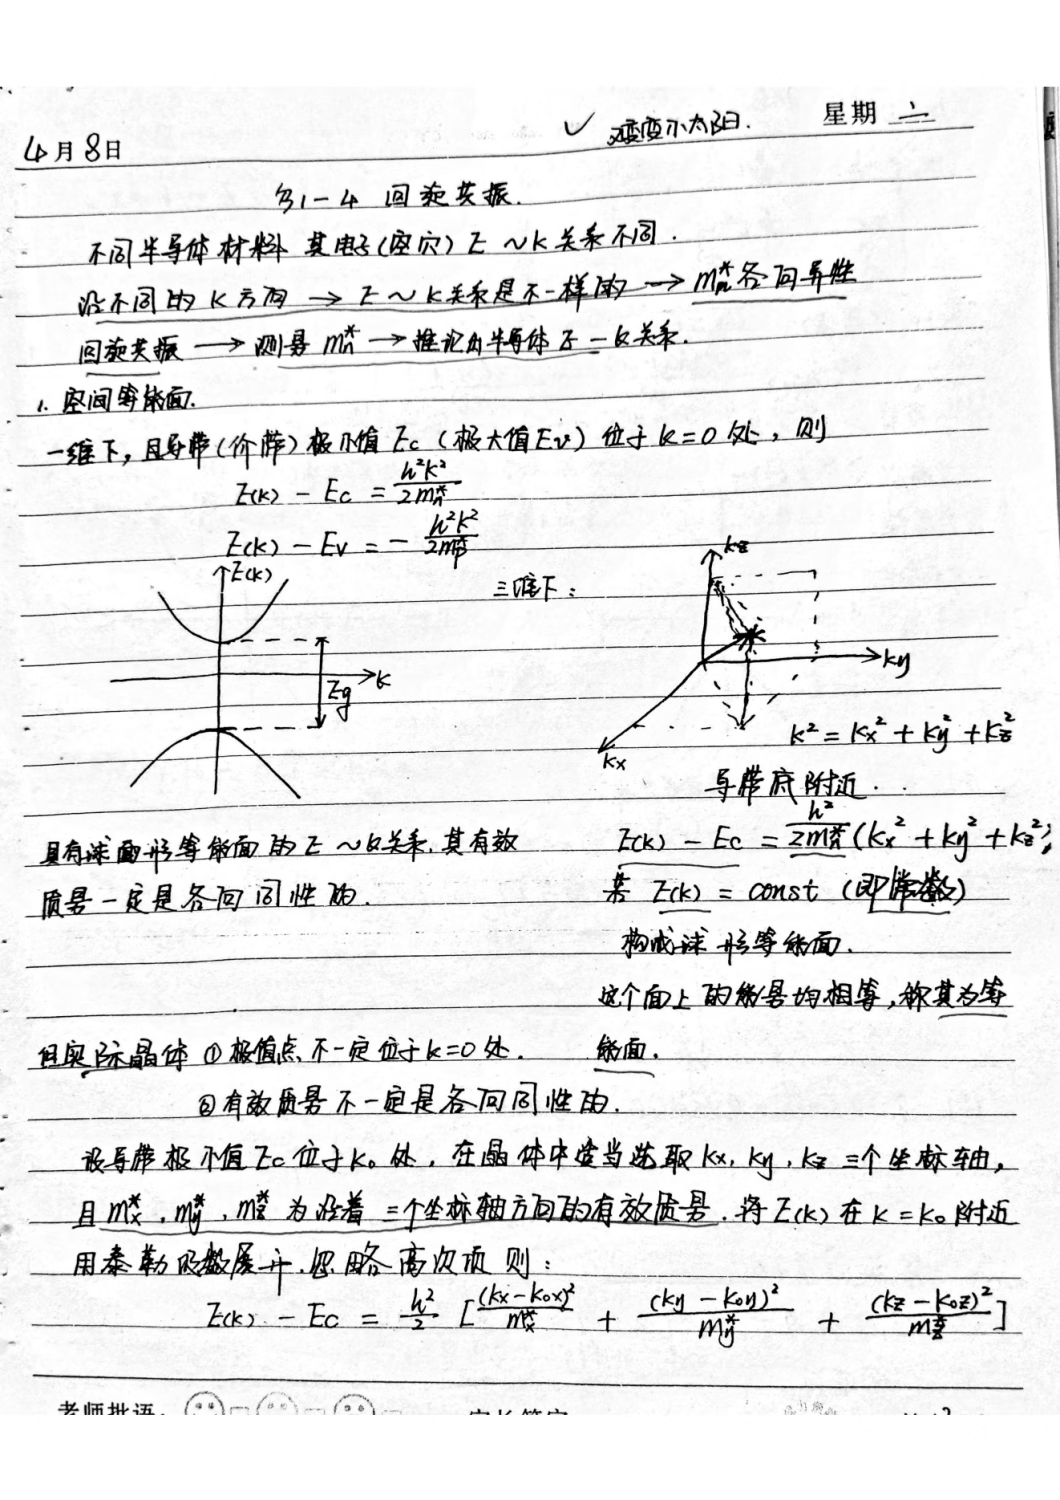 4月8日
✓
小太阳.
星期 二
§1-4 回旋共振.
不同半导体材料 其电子(空穴) E ~ k 关系不同.
沿不同的 k 方向 → E ~ k关系是不一样的 → mn* 各向异性
回旋共振 → 测量 mn* → 推论出半导体 E - k 关系.
1. 空间等能面.
一维下, 且导带(价带) 极小值 Ec (极大值Ev) 位于 k=0 处, 则
E(k) - Ec = h²k²/2mn*
E(k) - Ev = - h²k²/2mp*
E(k)
k
Eg
三维下:
kz
ky
kx
k² = kx² + ky² + kz²
导带底附近.
E(k) - Ec = h²/2mn* (kx² + ky² + kz²)
若 E(k) = const (即常数)
构成球形等能面.
这个面上的能量均相等, 称其为等
能面.
具有球面形等能面的 E ~ k关系, 其有效
质量一定是各向同性的.
但实际晶体 ① 极值点不一定位于k=0 处.
② 有效质量不一定是各向同性的.
设导带极小值 Ec 位于 k₀ 处, 在晶体中适当选取 kx, ky, kz 三个坐标轴,
且 mx*, my*, mz* 为沿着三个坐标轴方向的有效质量, 将 E(k) 在 k = k₀ 附近
用泰勒级数展开, 忽略高次项 则:
E(k) - Ec = h²/2 [(kx - k₀x)²/mx* + (ky - k₀y)²/my* + (kz - k₀z)²/mz*]
老师批语: